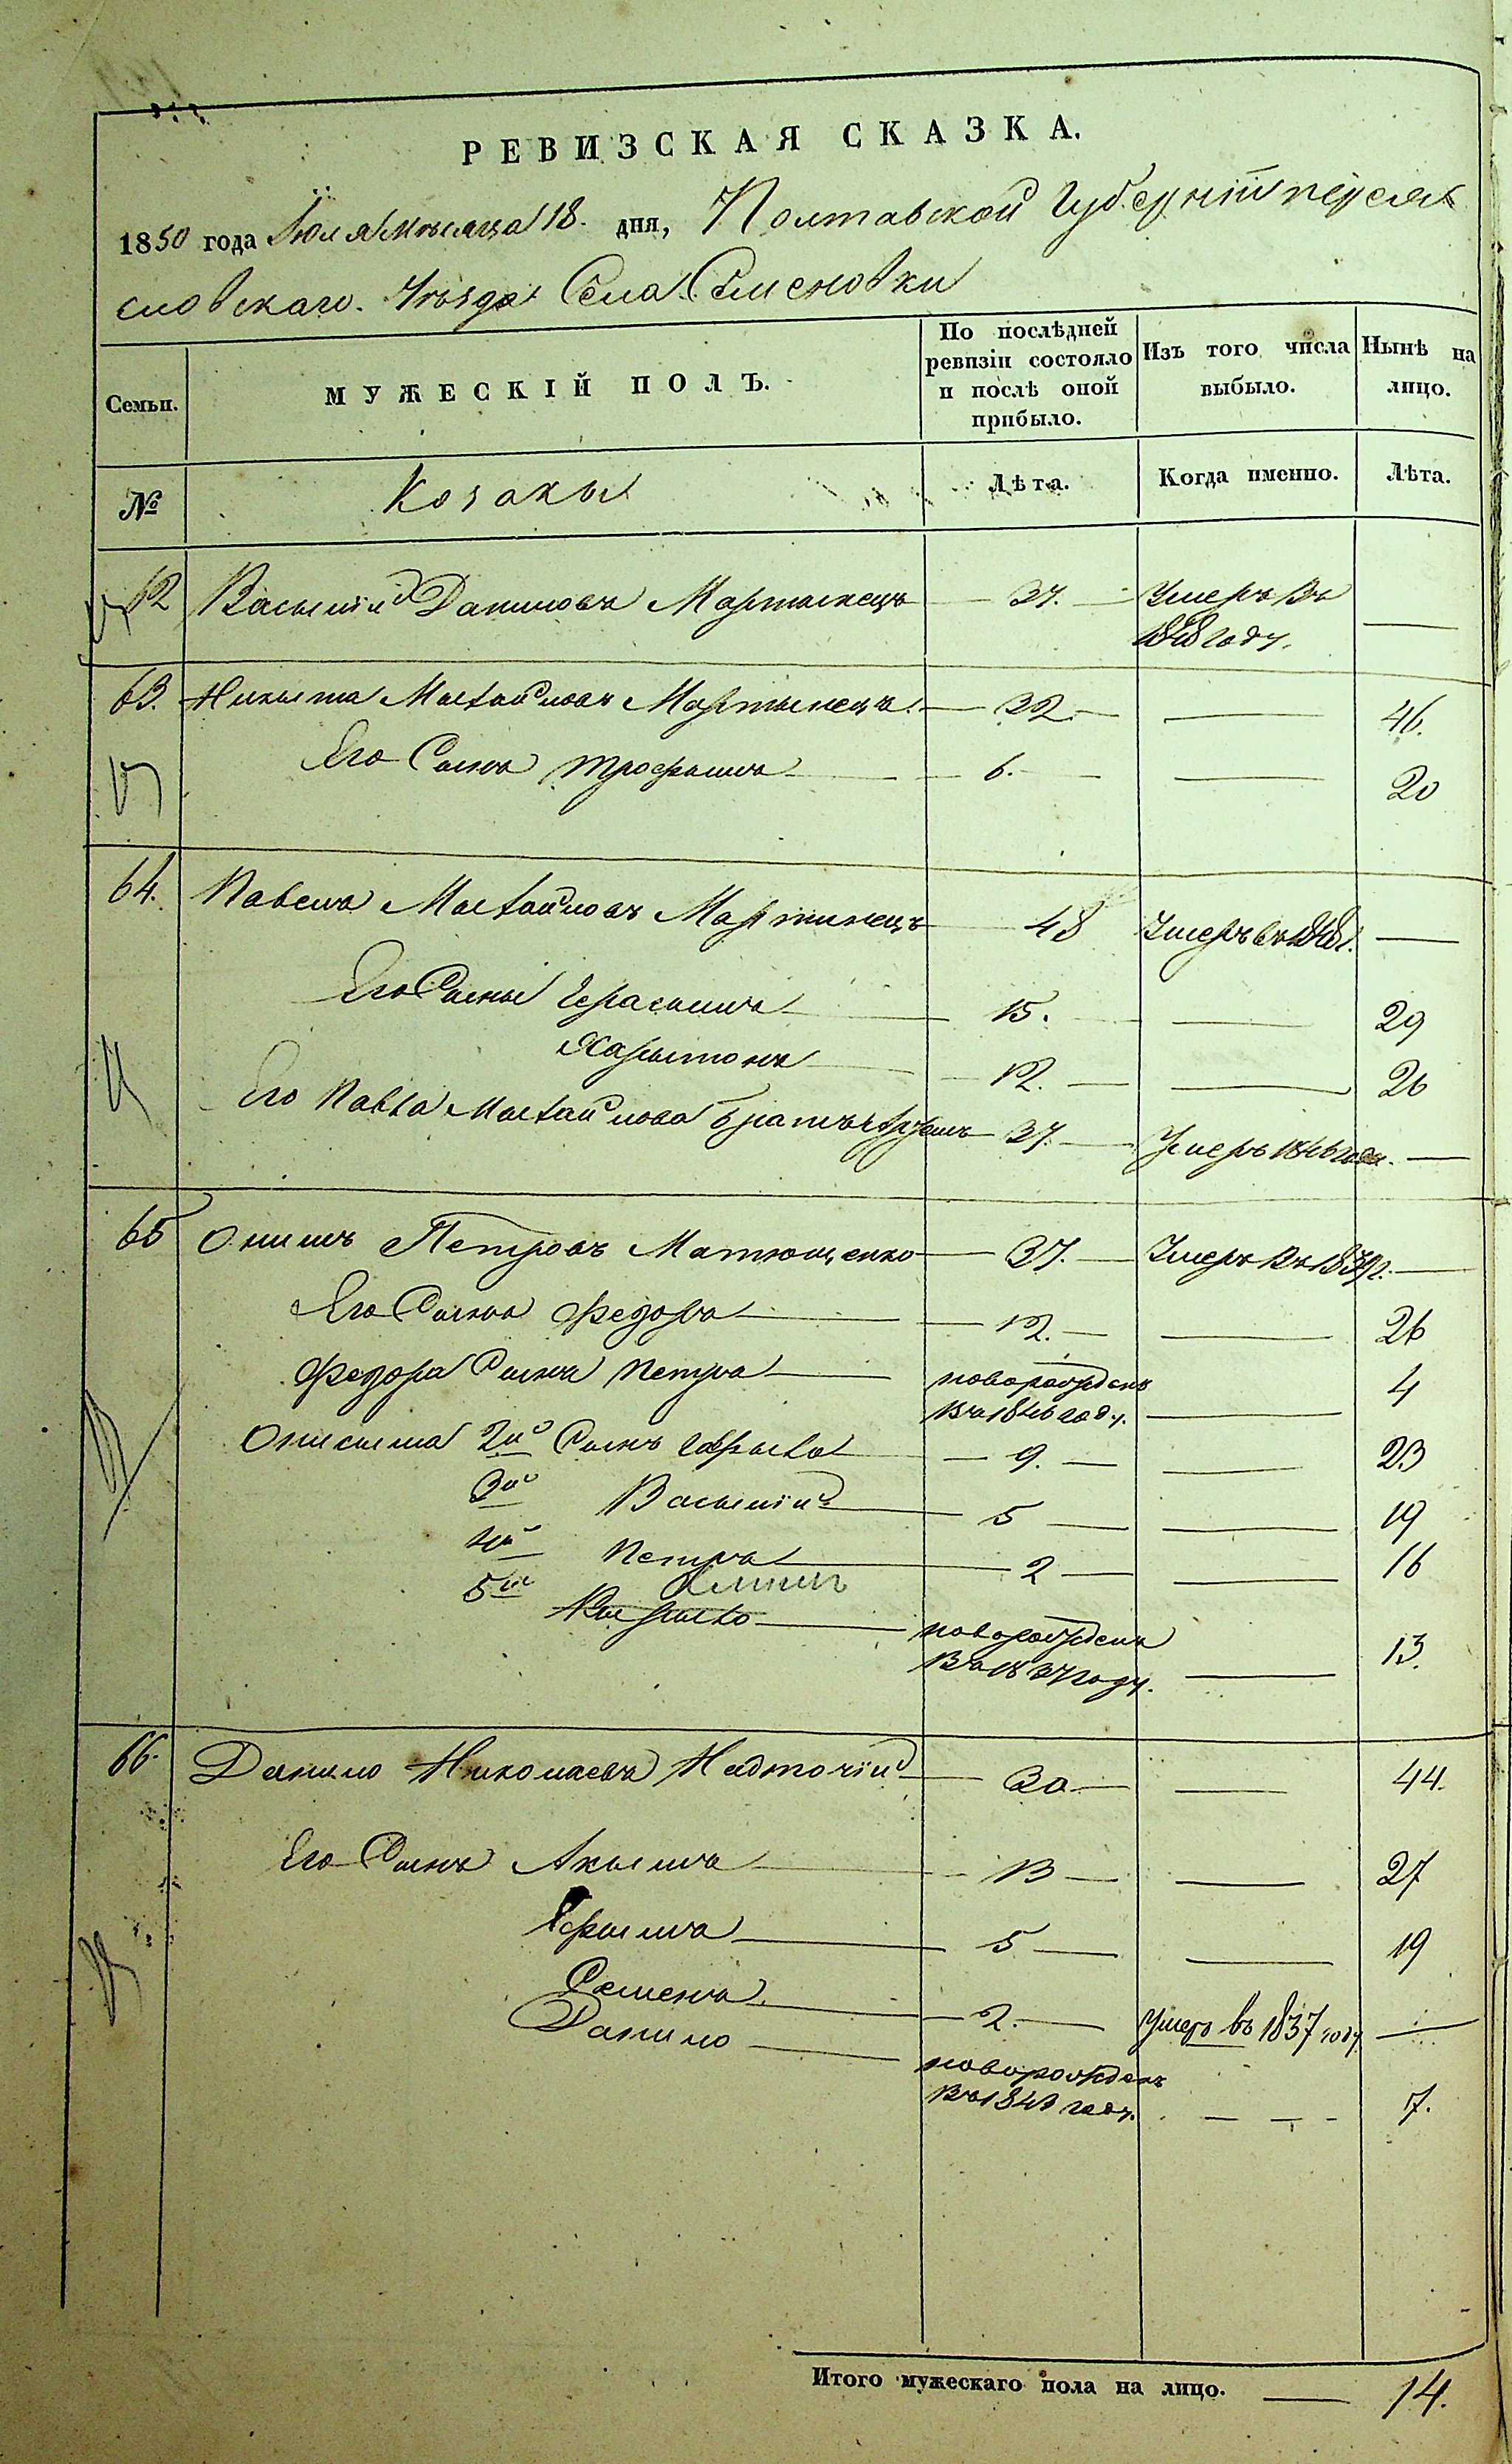 РЕВИЗСКАЯ СКАЗКА.
1850 года Іюля мѣсяца 18. дня, Полтавской Губерніи переяс
словскаго. Уѣзда Села Семеновки
Семьи. МУЖЕСКІЙ ПОЛЪ. По послѣдней ревизіи состояло и послѣ оной прибыло. Изъ того числа выбыло. Нынѣ на лицо.
№ Козакы Лѣта. Когда именно. Лѣта.
62 Васылій Даниловъ Мартынецъ 37. Умеръ въ
1848 году.
63. Никыта Мыхайловъ Мартынецъ 32 46.
Его Сынъ Трофымъ 6. 20
64. Павелъ Мыхайловъ Мартинецъ 48 Умеръ въ 1848 г.
Его Сыны Герасымъ 15. 29
Харытонъ 12. 26
Его Павла Мыхайлова братъ 37. Умеръ 1846 года.
65 Онисимъ Петровъ Матющенко 37. Умеръ въ 1839 г.
Его Сынъ Федоръ 12. 26
Федора Сынъ Петръ новорожденъ
въ 1846 году. 4
Онисыма 2й Сынъ 9. 23
3й Василій 5 19
4й Петръ 2 16
5й
Кирыло новорожденъ
въ 1837 году. 13
66. Данило Николаевъ Надточій 30 44.
Его Сынъ Акымъ 13 27
Ефымъ 5 19
Семенъ 2. Умеръ въ 1837 году
Данило новорожденъ
въ 1843 году. 7.
Итого мужескаго пола на лицо. 14.